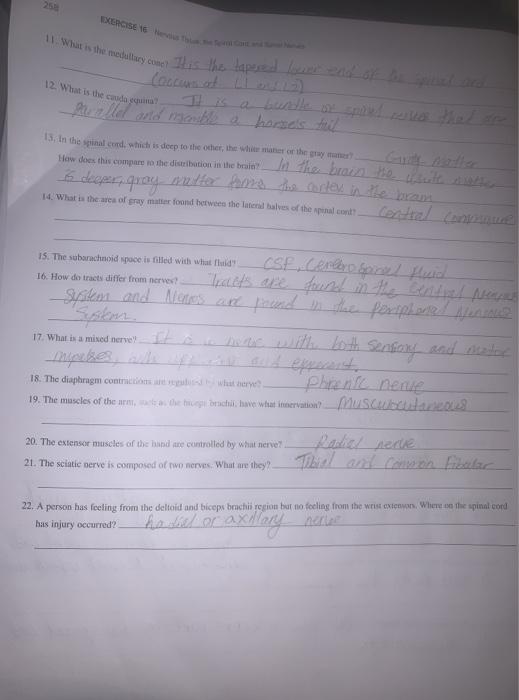 258
EXERCISE 16 Nervous Tissue, the Spinal Cord, and Spinal Nerves
11. What is the medullary cone? It is the tapered lower end of the spinal cord
(occurs at L1 and L2)
12. What is the cauda equina? It is a bundle of spinal nerves that are
Parallel and resemble a horse's tail
13. In the spinal cord, which is deep to the other, the white matter or the gray matter? Gray matter
How does this compare to the distribution in the brain? In the brain the white matter
is deeper, gray matter forms the cortex in the brain
14. What is the area of gray matter found between the lateral halves of the spinal cord? Central Commisure
15. The subarachnoid space is filled with what fluid? CSF, Cerebrospinal fluid
16. How do tracts differ from nerves? Tracts are found in the central Nervous
System and Nerves are found in the peripheral Nervous
System.
17. What is a mixed nerve? It is a nerve with both Sensory and motor
impulses, and
18. The diaphragm contractions are regulated by what nerve? Phrenic nerve
19. The muscles of the arm, such as the biceps brachii, have what innervation? Muscucutaneous
20. The extensor muscles of the hand are controlled by what nerve? Radial nerve
21. The sciatic nerve is composed of two nerves. What are they? Tibial and Common Fibular
22. A person has feeling from the deltoid and biceps brachii region but no feeling from the wrist extensors. Where on the spinal cord
has injury occurred? Radial or axillary nerve